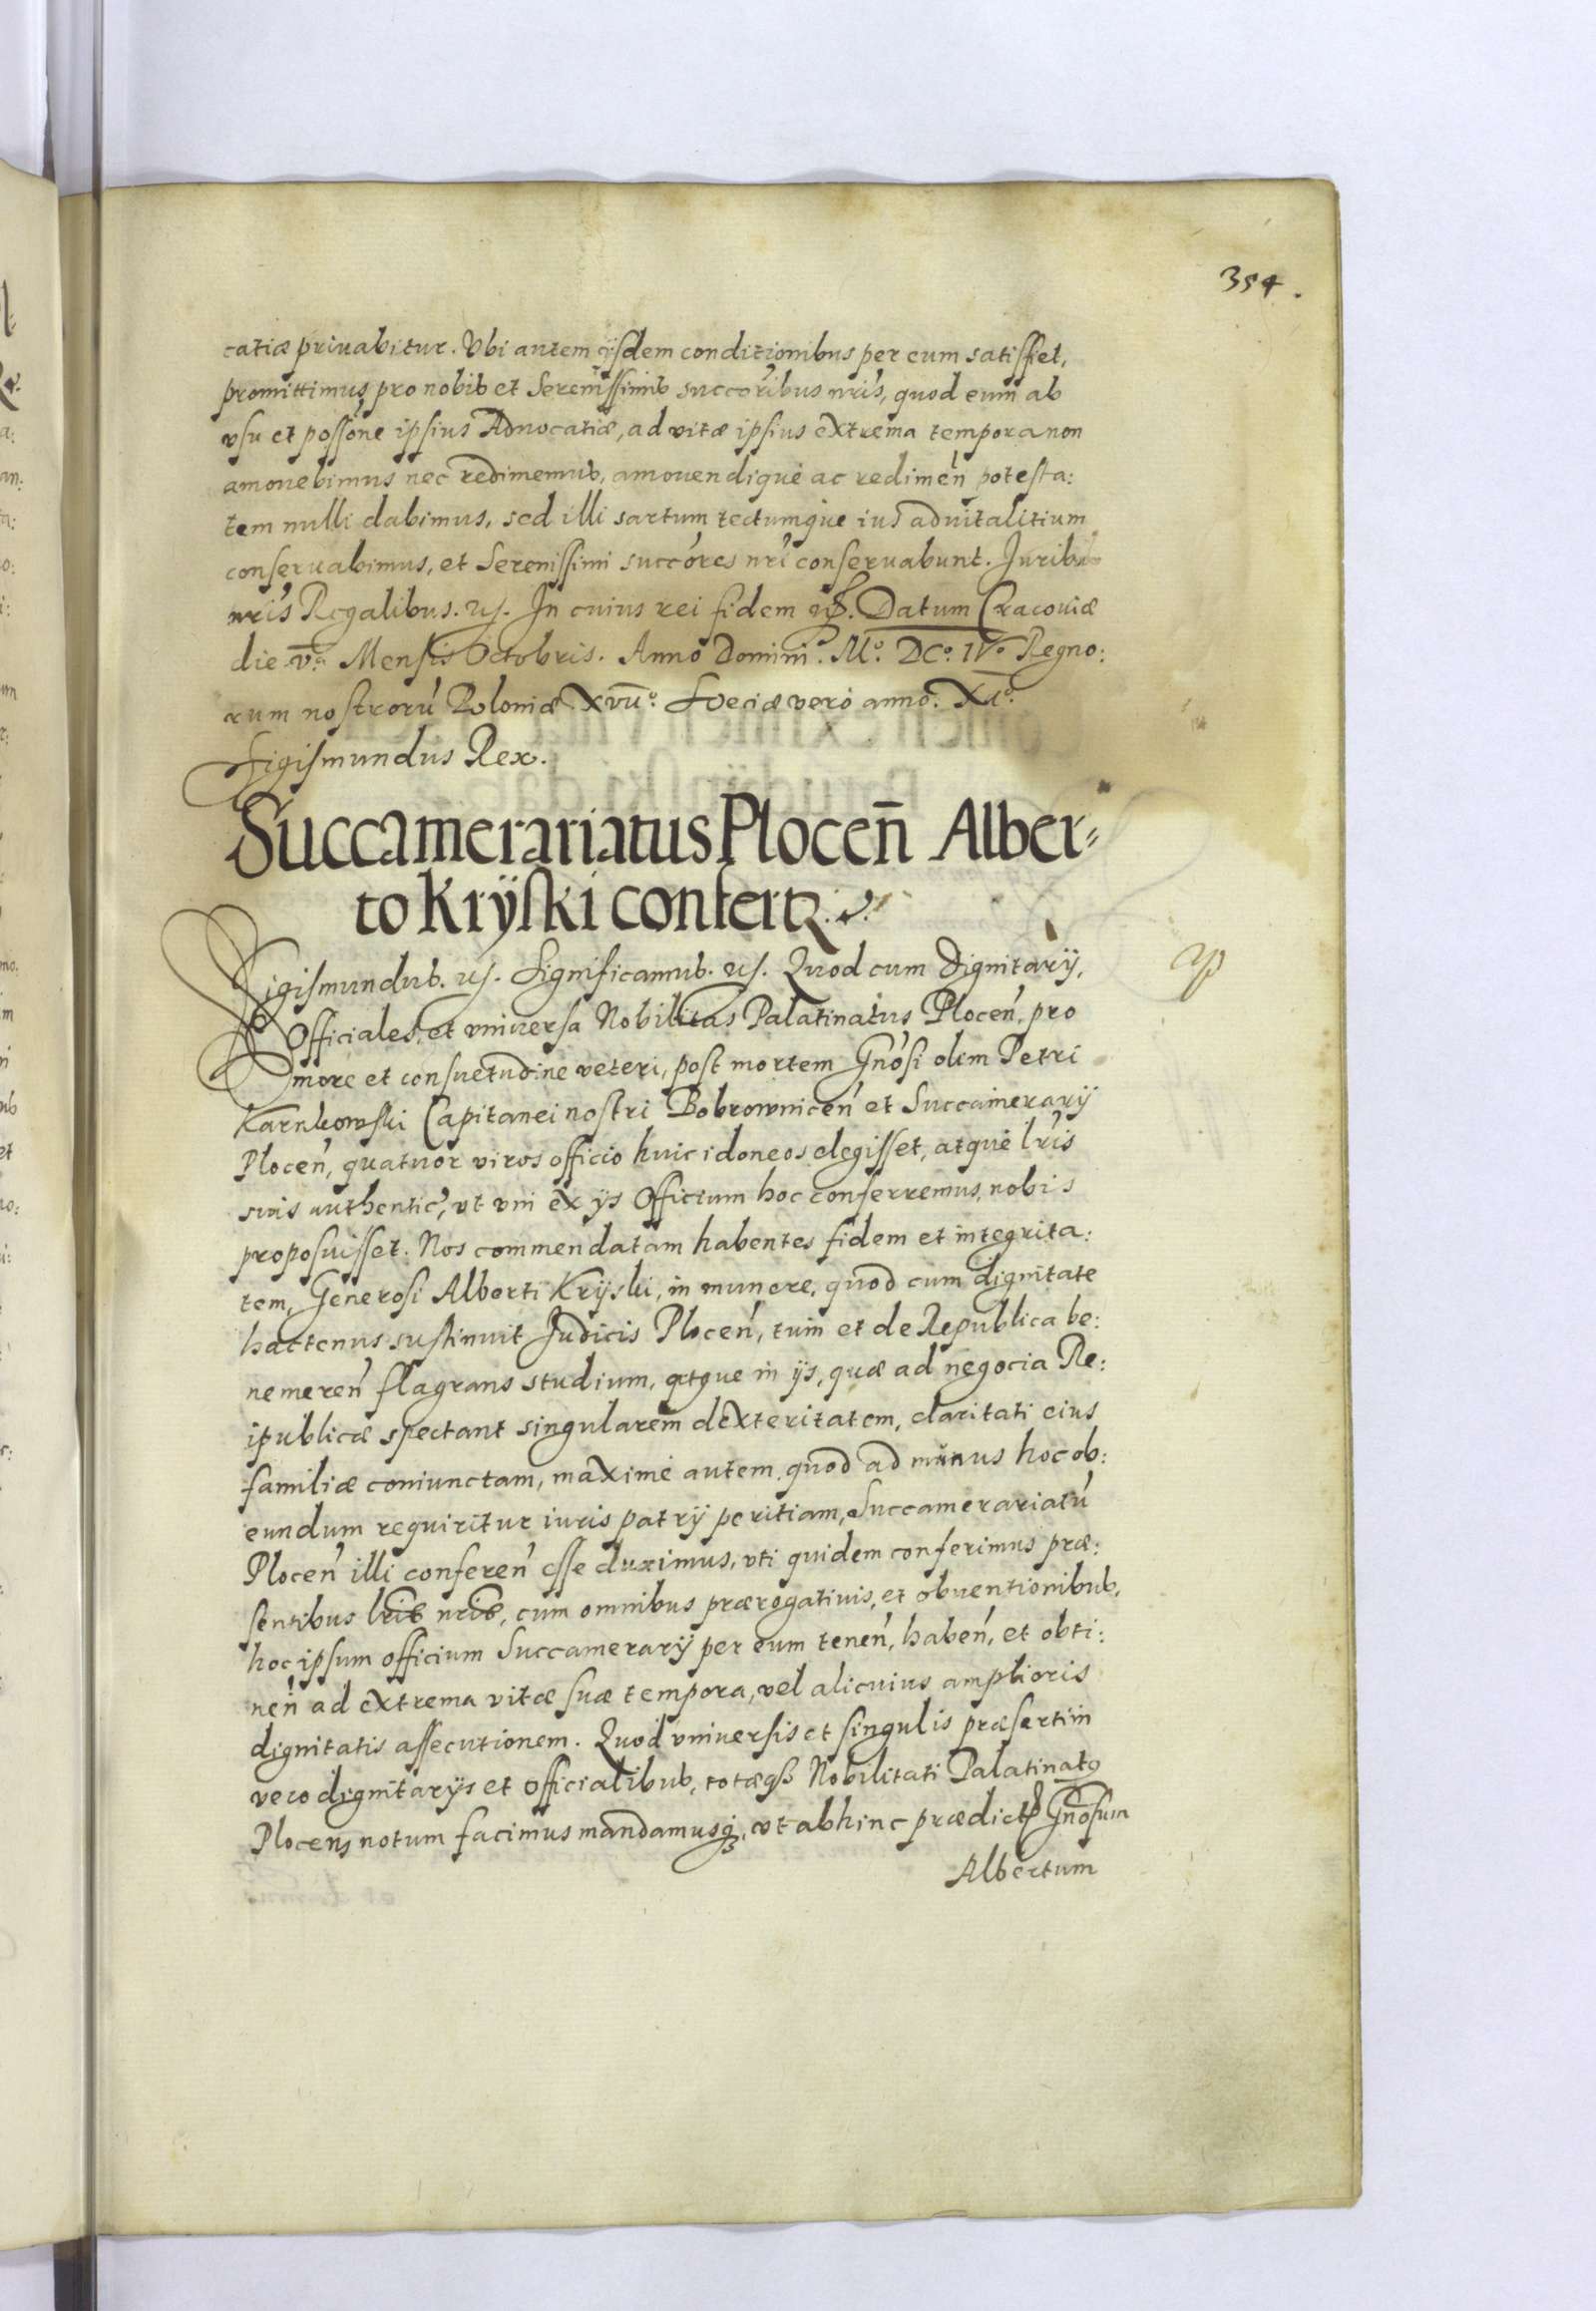 354.
catiæ priuabitur. Vbi autem ijsdem conditionibus per eum satisfiet,
promittimus pro nobis et Serenissimis succoribus nris, quod eum ab
vsu et possone ipsius Aduocatiæ, ad vitæ ipsius extrema tempora non
amouebimus nec redimemus, amouendique ac redimen potesta:
tem nulli dabimus, sed illi sartum tectumque ius aduitalitium
conseruabimus, et Serenissimi succores nri conseruabunt. Juribus
nris Regalibus. In cuius rei fidem Datum Cracouiæ
die v. Mensis Octobris. Anno Domini. Mo. DCo. IVo Regno:
rum nostroru Poloniæ XVIIo. Sveciæ vero anno. XIo.
Sigismundus Rex.
Succamerariatus Plocen Alber=
to Kryski confertr.
Sigismundus. Significamus. Quod cum Dignitarij,
Officiales, et vniuersa Nobilitas Palatinatus Plocen, pro
more et consuetudine veteri, post mortem Gnosi olim Petri
Karnkowski Capitanei nostri Bobrownicen et Succamerarij
Plocen, quatuor viros officio huic idoneos elegisset, atque lris
suis authentic, vt vni ex ijs Officium hoc conferremus, nobis
proposuisset. Nos commendatam habentes fidem et integrita:
tem, Generosi Alberti Kryski, in munere, quod cum dignitate
hactenus sustinuit Judicis Plocen, tum et de Republica be:
nemeren flagrans studium, atque in ijs, quæ ad negocia Re:
ipublicæ spectant singularem dexteritatem, claritati eius
familiæ coniunctam, maxime autem quod ad munus hoc ob:
eundum requiritur iuris patrij peritiam, Succamerariatu
Plocen illi conferen esse duximus, vti quidem conferimus præ:
sentibus lris nris, cum omnibus prærogatiuis, et obuentionibus,
hoc ipsum officium Succamerarij per eum tenen, haben, et obti:
nen ad extrema vitæ suæ tempora, vel alicuius amplioris
dignitatis assecutionem. Quod vniuersis et singulis præsertim
vero dignitarijs et Officialibus, totæqꝫ Nobilitati Palatinatꝰ
Plocens notum facimus mandamusqꝫ, vt abhinc prædict Gnosum
Albertum